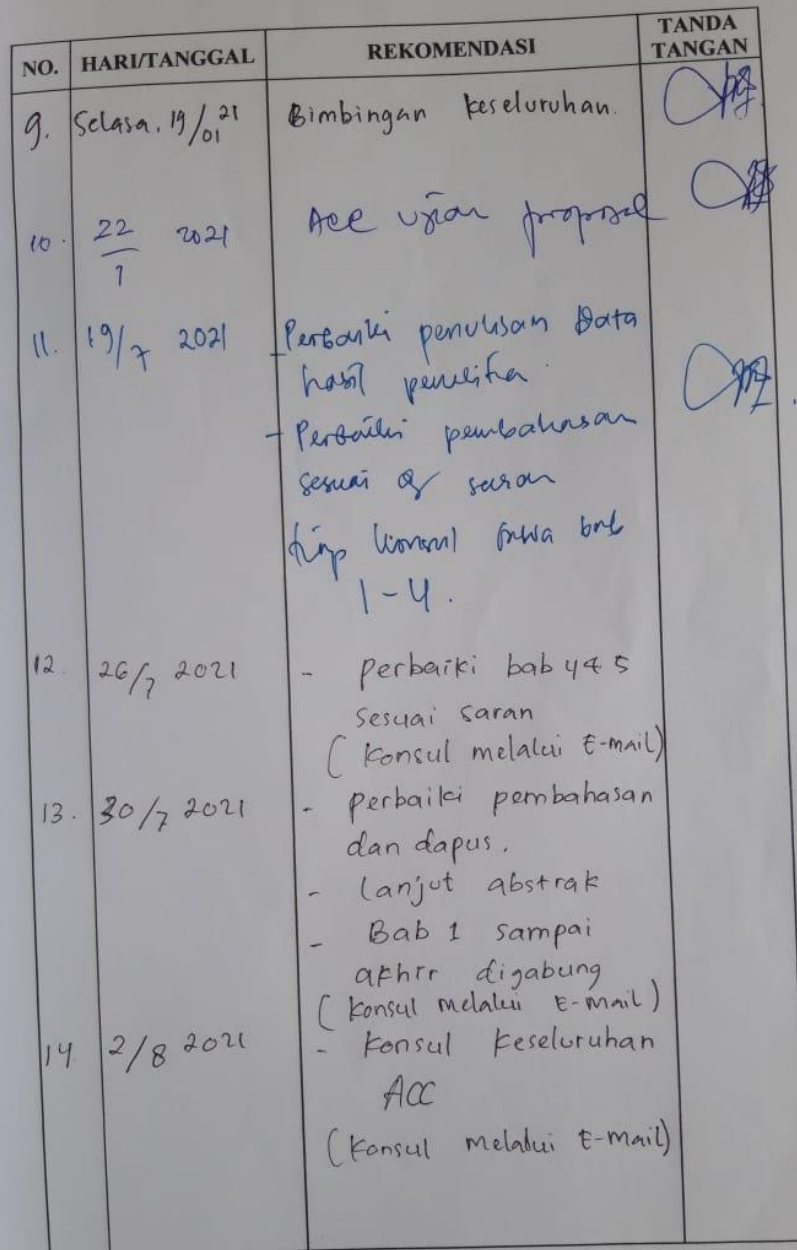 NO. HARI/TANGGAL REKOMENDASI TANDA TANGAN
9. Selasa, 19/01 21 Bimbingan keseluruhan.
10. 22/1 2021 Acc ujian proposal
11. 19/7 2021 - Perbaiki penulisan Data
hasil penelitia
- Perbaiki pembahasan
sesuai saran
tiap konsul bawa bab
1-4.
12. 26/7 2021 - perbaiki bab 4 & 5
sesuai saran
(konsul melalui E-mail)
13. 30/7 2021 - perbaiki pembahasan
dan dapus.
- lanjut abstrak
- Bab 1 sampai
akhir digabung
(konsul melalui E-mail)
14 2/8 2021 - konsul keseluruhan
ACC
(konsul melalui E-mail)